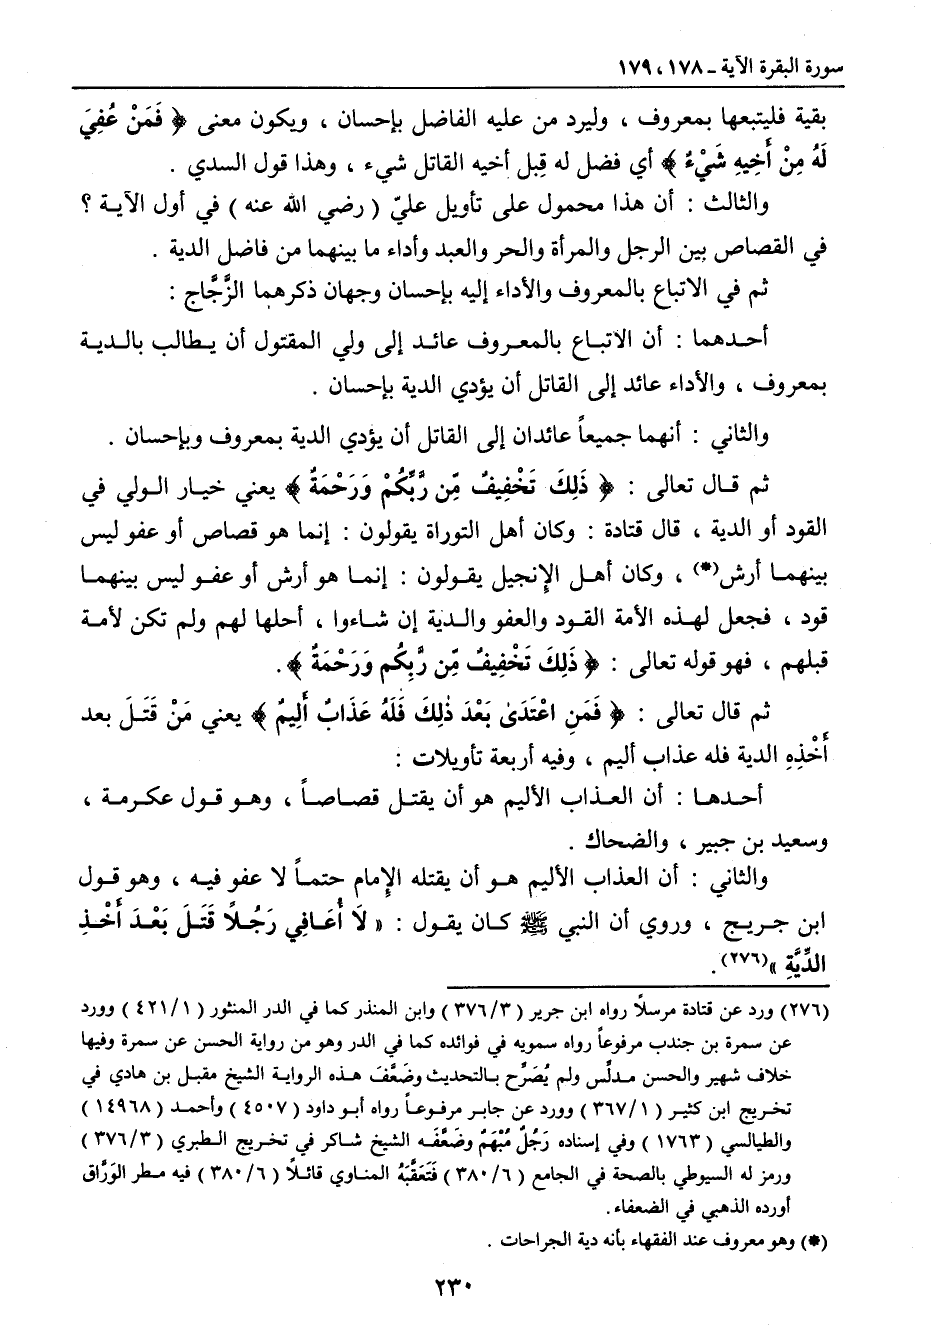 سورة البقرة الآية ـ ١٧٨ ، ١٧٩
بقية فليتبعها بمعروف ، وليرد من عليه الفاضل بإحسان ، ويكون معنى ﴿ فَمَنْ عُفِيَ
لَهُ مِنْ أَخِيهِ شَيْءٌ ﴾ أي فضل له قبل أخيه القاتل شيء ، وهذا قول السدي .
والثالث : أن هذا محمول على تأويل عليّ ( رضي الله عنه ) في أول الآية ؟
في القصاص بين الرجل والمرأة والحر والعبد وأداء ما بينهما من فاضل الدية .
ثم في الاتباع بالمعروف والأداء إليه بإحسان وجهان ذكرهما الزَّجَّاج :
أحدهما : أن الاتباع بالمعروف عائد إلى ولي المقتول أن يطالب بالدية
بمعروف ، والأداء عائد إلى القاتل أن يؤدي الدية بإحسان .
والثاني : أنهما جميعاً عائدان إلى القاتل أن يؤدي الدية بمعروف وبإحسان .
ثم قال تعالى : ﴿ ذَلِكَ تَخْفِيفٌ مِّن رَّبِّكُمْ وَرَحْمَةٌ ﴾ يعني خيار الولي في
القود أو الدية ، قال قتادة : وكان أهل التوراة يقولون : إنما هو قصاص أو عفو ليس
بينهما أرش(*) ، وكان أهل الإنجيل يقولون : إنما هو أرش أو عفو ليس بينهما
قود ، فجعل لهذه الأمة القود والعفو والدية إن شاءوا ، أحلها لهم ولم تكن لأمة
قبلهم ، فهو قوله تعالى : ﴿ ذَلِكَ تَخْفِيفٌ مِّن رَّبِّكُم وَرَحْمَةٌ ﴾.
ثم قال تعالى : ﴿ فَمَنِ اعْتَدَىٰ بَعْدَ ذَٰلِكَ فَلَهُ عَذَابٌ أَلِيمٌ ﴾ يعني مَنْ قَتَلَ بعد
أَخْذِهِ الدية فله عذاب أليم ، وفيه أربعة تأويلات :
أحدها : أن العذاب الأليم هو أن يقتل قصاصاً ، وهو قول عكرمة ،
وسعيد بن جبير ، والضحاك .
والثاني : أن العذاب الأليم هو أن يقتله الإمام حتماً لا عفو فيه ، وهو قول
ابن جريج ، وروي أن النبي ﷺ كان يقول : « لَا أُعَافِي رَجُلاً قَتَلَ بَعْدَ أَخْذِ
الدِّيَّةِ »(٢٧٦).
(٢٧٦) ورد عن قتادة مرسلاً رواه ابن جرير ( ٣/ ٣٧٦ ) وابن المنذر كما في الدر المنثور ( ١/ ٤٢١ ) وورد
عن سمرة بن جندب مرفوعاً رواه سمويه في فوائده كما في الدر وهو من رواية الحسن عن سمرة وفيها
خلاف شهير والحسن مدلّس ولم يُصَرِّح بالتحديث وضَعَّفَ هذه الرواية الشيخ مقبل بن هادي في
تخريج ابن كثير ( ١/ ٣٦٧ ) وورد عن جابر مرفوعاً رواه أبو داود ( ٤٥٠٧ ) وأحمد ( ١٤٩٦٨ )
والطيالسي ( ١٧٦٣ ) وفي إسناده رَجُلٌ مُبْهَمٌ وضَعَّفَه الشيخ شاكر في تخريج الطبري ( ٣/ ٣٧٦ )
ورمز له السيوطي بالصحة في الجامع ( ٦/ ٣٨٠ ) فَتَعَقَّبَهُ المناوي قائلاً ( ٦/ ٣٨٠ ) فيه مطر الوَرَّاق
أورده الذهبي في الضعفاء.
(*) وهو معروف عند الفقهاء بأنه دية الجراحات .
٢٣٠